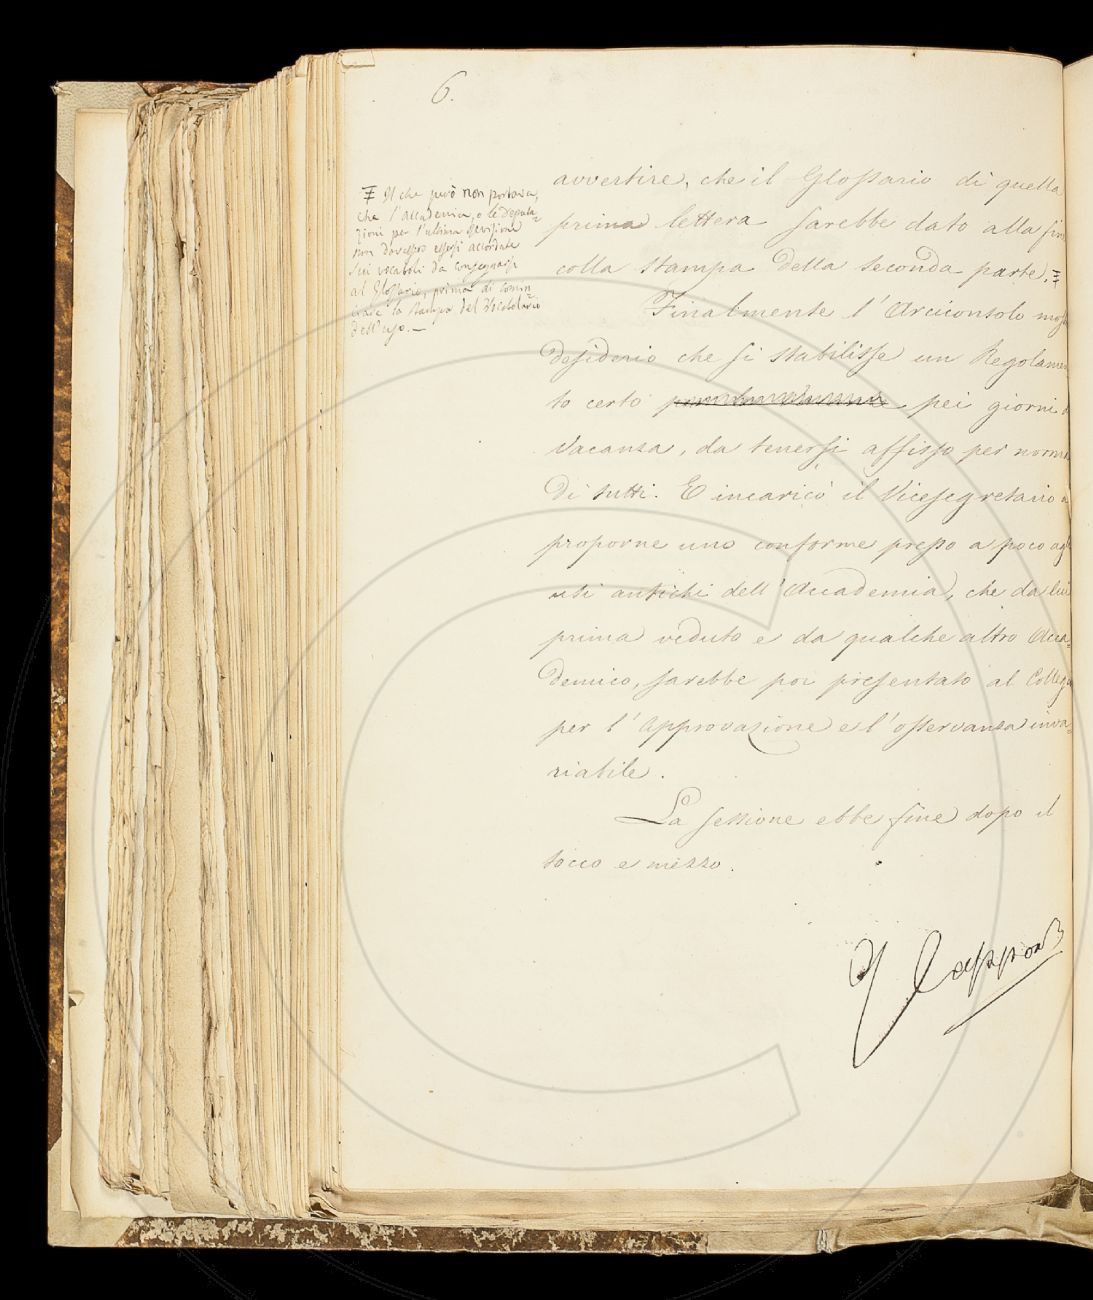 6.
avvertire, che il Glossario di quella
prima lettera sarebbe dato alla fine
colla stampa della seconda parte. ǂ
Finalmente l'Arciconsolo mos
desiderio che si stabilisse un Regolamen
to certo pei giorni d
vacanza, da tenersi affisso per norma
di tutti. E incaricò il Vicesegretario a
proporne uno conforme presso a poco agli
usi antichi dell'Accademia, che da lui
prima veduto e da qualche altro Acca-
demico, sarebbe poi presentato al Collegio
per l'approvazione e l'osservanza inva-
riabile.
La sessione ebbe fine dopo il
tocco e mezzo.
ǂ Il che però non portava,
che l'Accademia, o le deputa-
zioni per l'ultima revisione
non dovessero essersi accordate
sui vocaboli da consegnarsi
al Glossario, prima di comin
ciare la stampa del Vocabolario
dell'uso. —
G Capponi